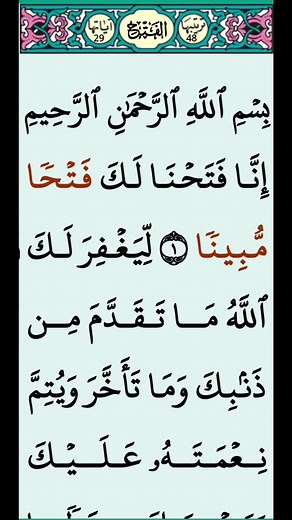 ترتيبها 48 الفتح آياتها 29
بِسْمِ ٱللَّهِ ٱلرَّحْمَٰنِ ٱلرَّحِيمِ
إِنَّا فَتَحْنَا لَكَ فَتْحًا
مُّبِينًا ١ لِّيَغْفِرَ لَكَ
ٱللَّهُ مَا تَقَدَّمَ مِن
ذَنۢبِكَ وَمَا تَأَخَّرَ وَيُتِمَّ
نِعْمَتَهُۥ عَلَيْكَ